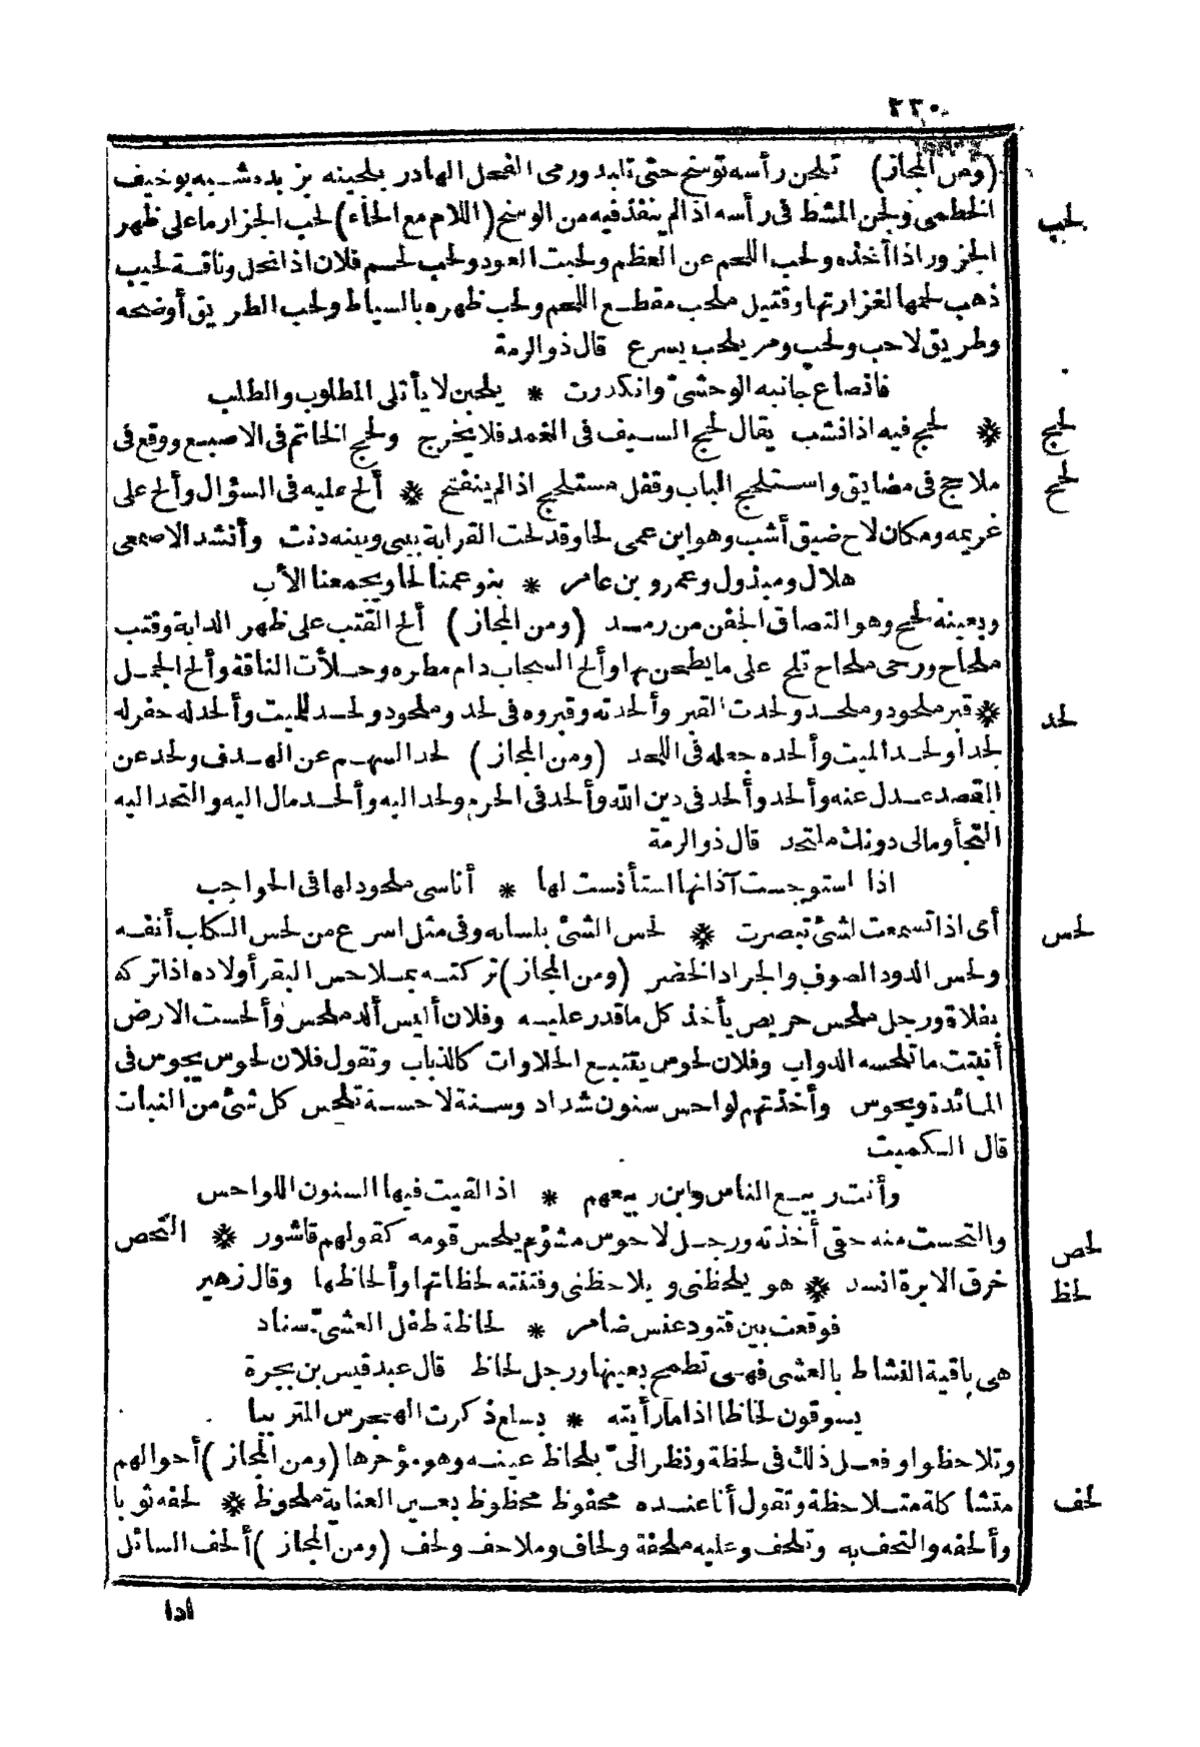 ٢٣٠
(ومن المجاز) تلجن رأسه توسخ حتى تلبد ورمى الفحل الهادر بلجينه بزبده شبه بوخيف
الخطمى ولجن المشط فى رأسه اذا لم ينفذ فيه من الوسخ (اللام مع الحاء) لحب الجزار ما على ظهر
الجزور اذا أخذه ولحب اللحم عن العظم ولحبت العود ولحب لحسم فلان اذا نحل وناقة لحيب
ذهب لحمها لغزارتها وقتيل ملحب مقطع اللحم ولحب ظهره بالسياط ولحب الطريق أوضحه
وطريق لاحب ولحب ومر يلحب يسرع قال ذو الرمة
فانصاع جانبه الوحشىّ وانكدرت * يلحبن لا يأتلى المطلوب والطلب
* لحج فيه اذا نشب يقال لحج السيف فى الغمد فلا يخرج ولحج الخاتم فى الاصبع ووقع فى
ملاحج فى مضايق واستلحج الباب وقفل مستلحج اذا لم ينفتح * ألح عليه فى السؤال وألح على
غريمه ومكان لاح ضيق أشب وهو ابن عمى لحا وقد لحت القرابة بينى وبينه دنت وأنشد الاصمعى
هلال ومبذول وعمرو بن عامر * بنو عمنا لحا ويجمعنا الأب
وبعينه لحح وهو التصاق الجفن من رمد (ومن المجاز) ألح القتب على ظهر الدابة وقتب
ملحاح ورحى ملحاح تلح على ما يطحن بها وألح السحاب دام مطره وحلأت الناقة وألح الجمل
* قبر ملحود وملحد ولحدت القبر وألحدته وقبروه فى لحد وملحود ولحد للميت وألحد له حفر له
لحدا ولحد الميت وألحده جعله فى اللحد (ومن المجاز) لحد السهم عن الهدف ولحد عن
القصد عدل عنه وألحد وألحد فى دين الله وألحد فى الحرم ولحد اليه وألحد مال اليه والتحد اليه
التجأ ومالى دونك ملتحد قال ذو الرمة
اذا استوجست آذانها استأنست لها * أناسى ملحود لها فى الحواجب
أى اذا تسمعت لشئ تبصرت * لحس الشئ بلسانه وفى مثل اسرع من لحس الكلب أنفه
ولحس الدود الصوف والجراد الخضر (ومن المجاز) تركته بملاحس البقر أولاده اذا تركه
بفلاة ورجل ملحس حريص يأخذ كل ما قدر عليه وفلان أليس ألد ملحس وألحست الارض
أنبتت ما تلحسه الدواب وفلان لحوس يتتبع الحلاوات كالذباب وتقول فلان لحوس يجوس فى
المائدة ويحوس وأخذتهم لواحس سنون شداد وسنة لاحسة تلحس كل شئ من النبات
قال الكميت
وأنت ربيع الناس وابن ربيعهم * اذا لقيت فيها السنون اللواحس
والتحست منه حقى أخذته ورجل لاحوس مشؤم يلحس قومه كقولهم قاشور * التحص
خرق الابرة انسد * هو يلحظنى ويلاحظنى وفتنته لحظاتها وألحاظها وقال زهير
فوقعت بين قتود عنس ضامر * لحاظة طفل العشىّ سناد
هى باقية النشاط بالعشى فهى تطمح بعينها ورجل لحاظ قال عبد قيس بن بجرة
يسوقون لحاظا اذا ما رأيته * بسلع ذكرت الهجرس المتربيا
وتلاحظوا وفعل ذلك فى لحظة ونظر الىّ بلحاظ عينه وهو مؤخرها (ومن المجاز) أحوالهم
متشاكلة متلاحظة وتقول أنا عنده محفوظ محظوظ بعين العناية ملحوظ * لحفه ثوبا
وألحفه والتحف به وتلحف وعليه ملحفة ولحاف وملاحف ولحف (ومن المجاز) ألحف السائل
لحب
لحج
لحح
لحد
لحس
لحص
لحظ
لحف
اذا